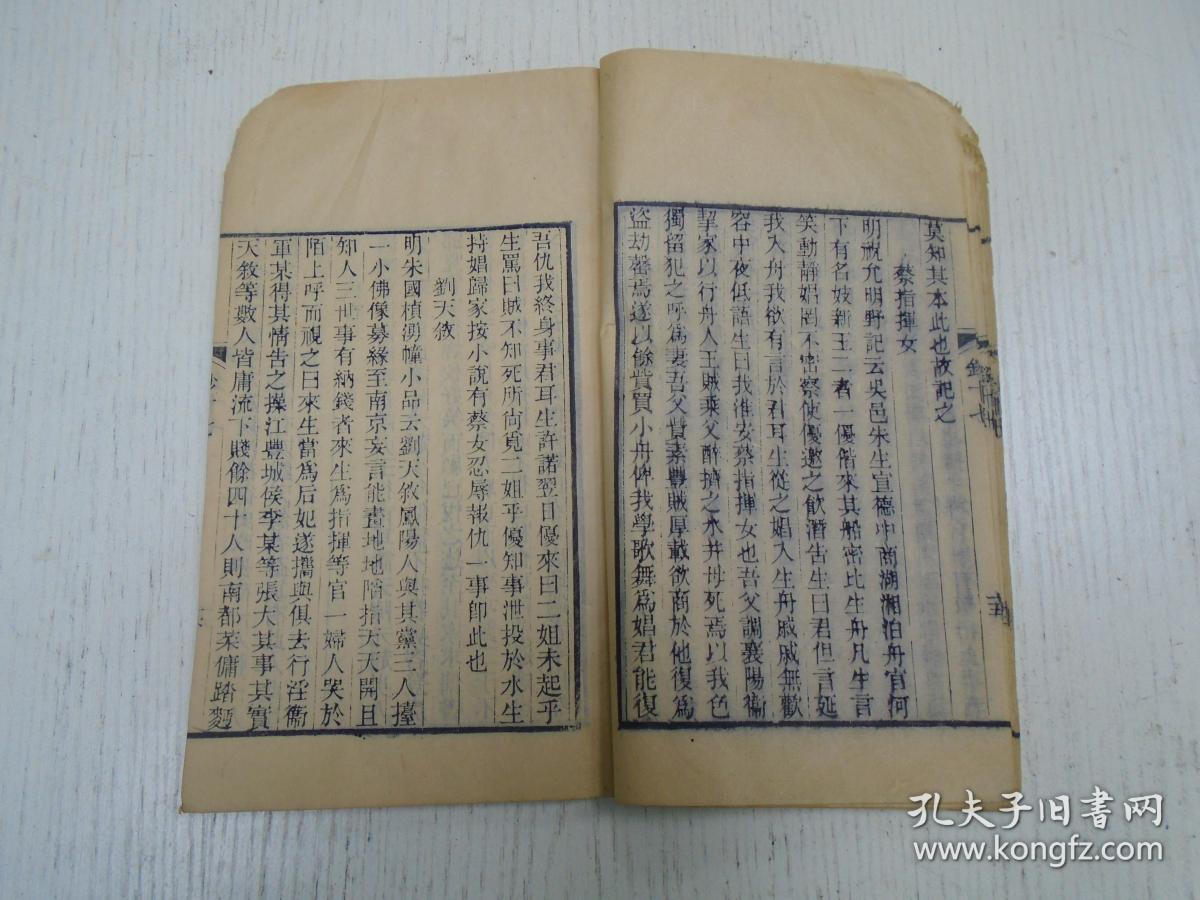 莫知其本此也故記之
蔡指揮女
明祝允明野記云吳邑朱生宣德中商湖湘泊舟官河
下有名妓新王二者一優偕來其船密比生舟凡生言
笑動靜娼罔不密察使優邀之飲潛告生曰君但言延
我入舟我欲有言於君耳生從之娼入生舟戚戚無歡
容中夜低語生曰我淮安蔡指揮女也吾父調襄陽衞
挈家以行舟人王賊乘父醉擠之水并母死焉以我色
獨留犯之呼爲妻吾父貲素豐賊厚載欲商於他復爲
盜劫罄焉遂以餘貲買小舟俾我學歌舞爲娼君能復
吾仇我終身事君耳生許諾翌日優來曰二姐未起乎
生罵曰賊不知死所尙覓二姐乎優知事泄投於水生
持娼歸家按小說有蔡女忍辱報仇一事卽此也
劉天敘
明朱國楨湧幢小品云劉天敘鳳陽人與其黨三人擡
一小佛像募緣至南京妄言能畫地地陷指天天開且
知人三世事有納錢者來生爲指揮等官一婦人哭於
陌上呼而視之曰來生當爲后妃遂攜與俱去行淫衞
軍某得其情告之操江豐城侯李某等張大其事其實
天敘等數人皆庸流下賤餘四十人則南都菜傭踏麪
孔夫子旧书网
www.kongfz.com